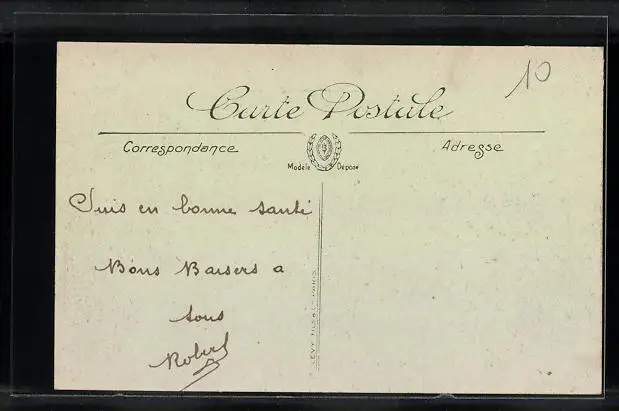 10
Carte Postale
Correspondance
Adresse
Modèle Déposé
Suis en bonne santé
Bons Baisers a
tous
Robert
LEVY FILS & Cie PARIS